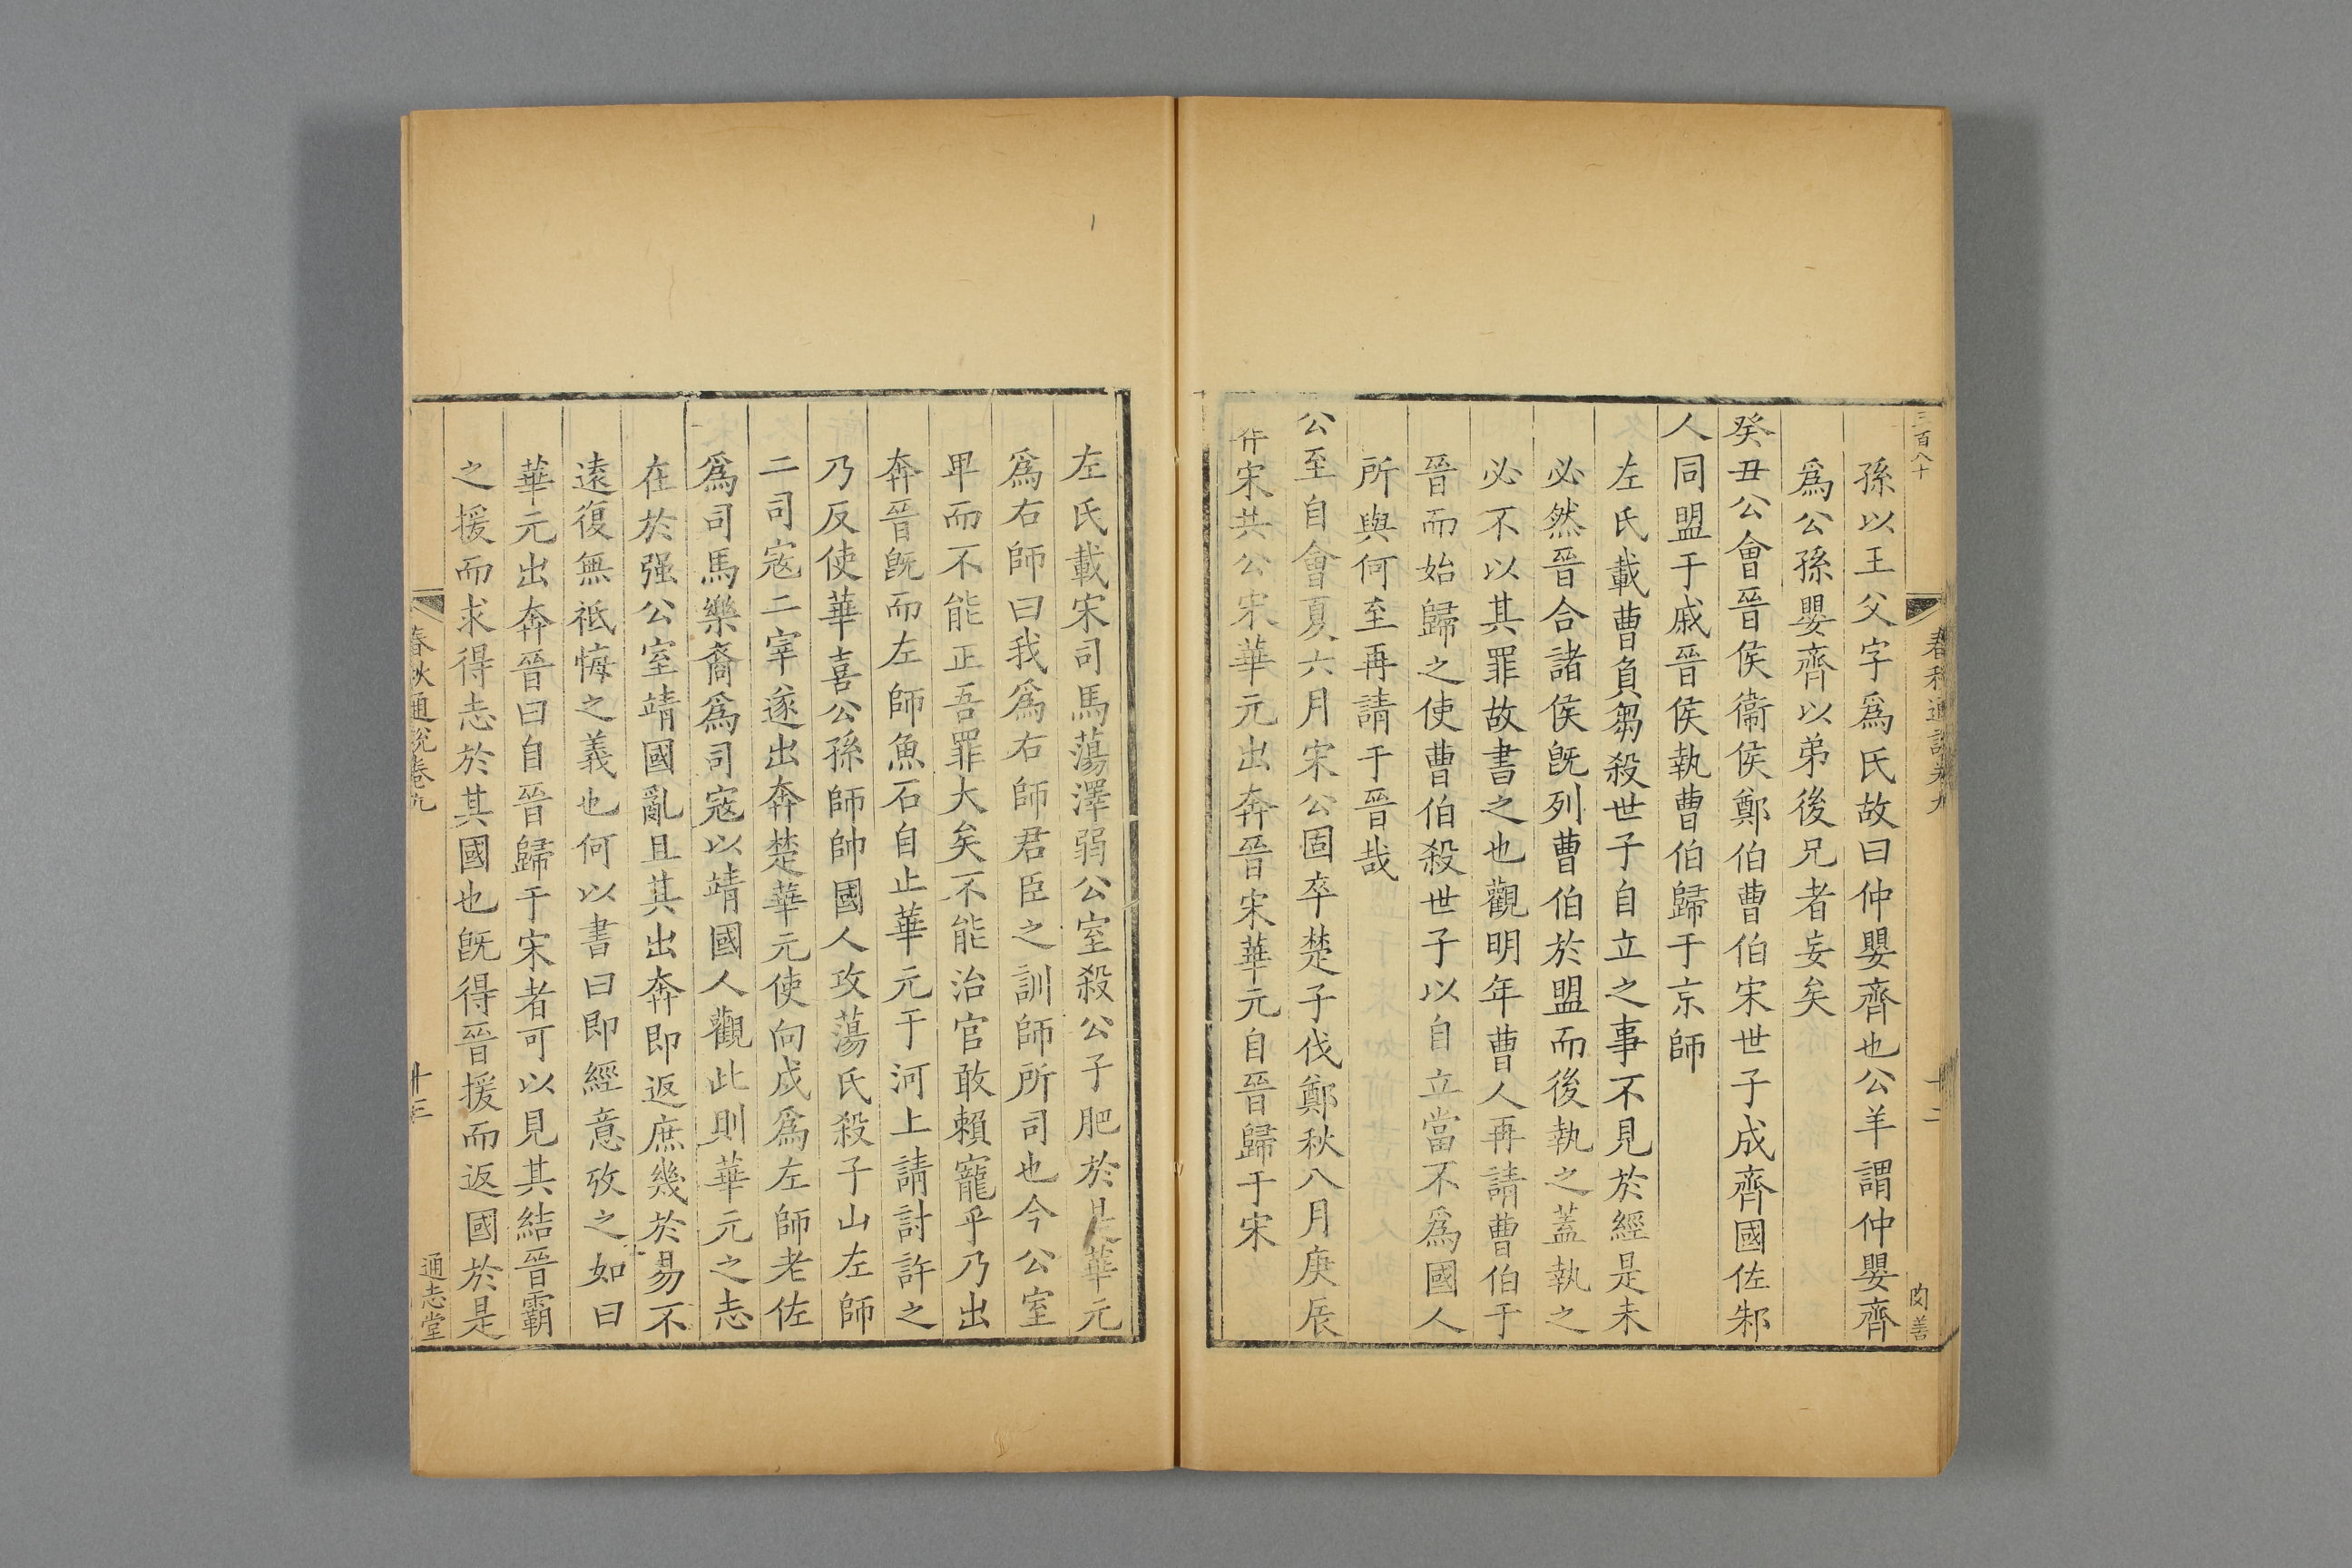 三百八十
春秋通說卷九
十二
閔善
孫以王父字爲氏故曰仲嬰齊也公羊謂仲嬰齊
爲公孫嬰齊以弟後兄者妄矣
癸丑公會晉侯衞侯鄭伯曹伯宋世子成齊國佐邾
人同盟于戚晉侯執曹伯歸于京師
左氏載曹負芻殺世子自立之事不見於經是未
必然晉合諸侯旣列曹伯於盟而後執之蓋執之
必不以其罪故書之也觀明年曹人再請曹伯于
晉而始歸之使曹伯殺世子以自立當不爲國人
所與何至再請于晉哉
公至自會夏六月宋公固卒楚子伐鄭秋八月庚辰
宋共公宋華元出奔晉宋華元自晉歸于宋
左氏載宋司馬蕩澤弱公室殺公子肥於是華元
爲右師曰我爲右師君臣之訓師所司也今公室
卑而不能正吾罪大矣不能治官敢賴寵乎乃出
奔晉旣而左師魚石自止華元于河上請討許之
乃反使華喜公孫師帥國人攻蕩氏殺子山左師
二司寇二宰遂出奔楚華元使向戍爲左師老佐
爲司馬樂裔爲司寇以靖國人觀此則華元之志
在於强公室靖國亂且其出奔即返庶幾於易不
遠復無祗悔之義也何以書曰即經意攷之如曰
華元出奔晉曰自晉歸于宋者可以見其結晉霸
之援而求得志於其國也旣得晉援而返國於是
春秋通說卷九
十三
通志堂